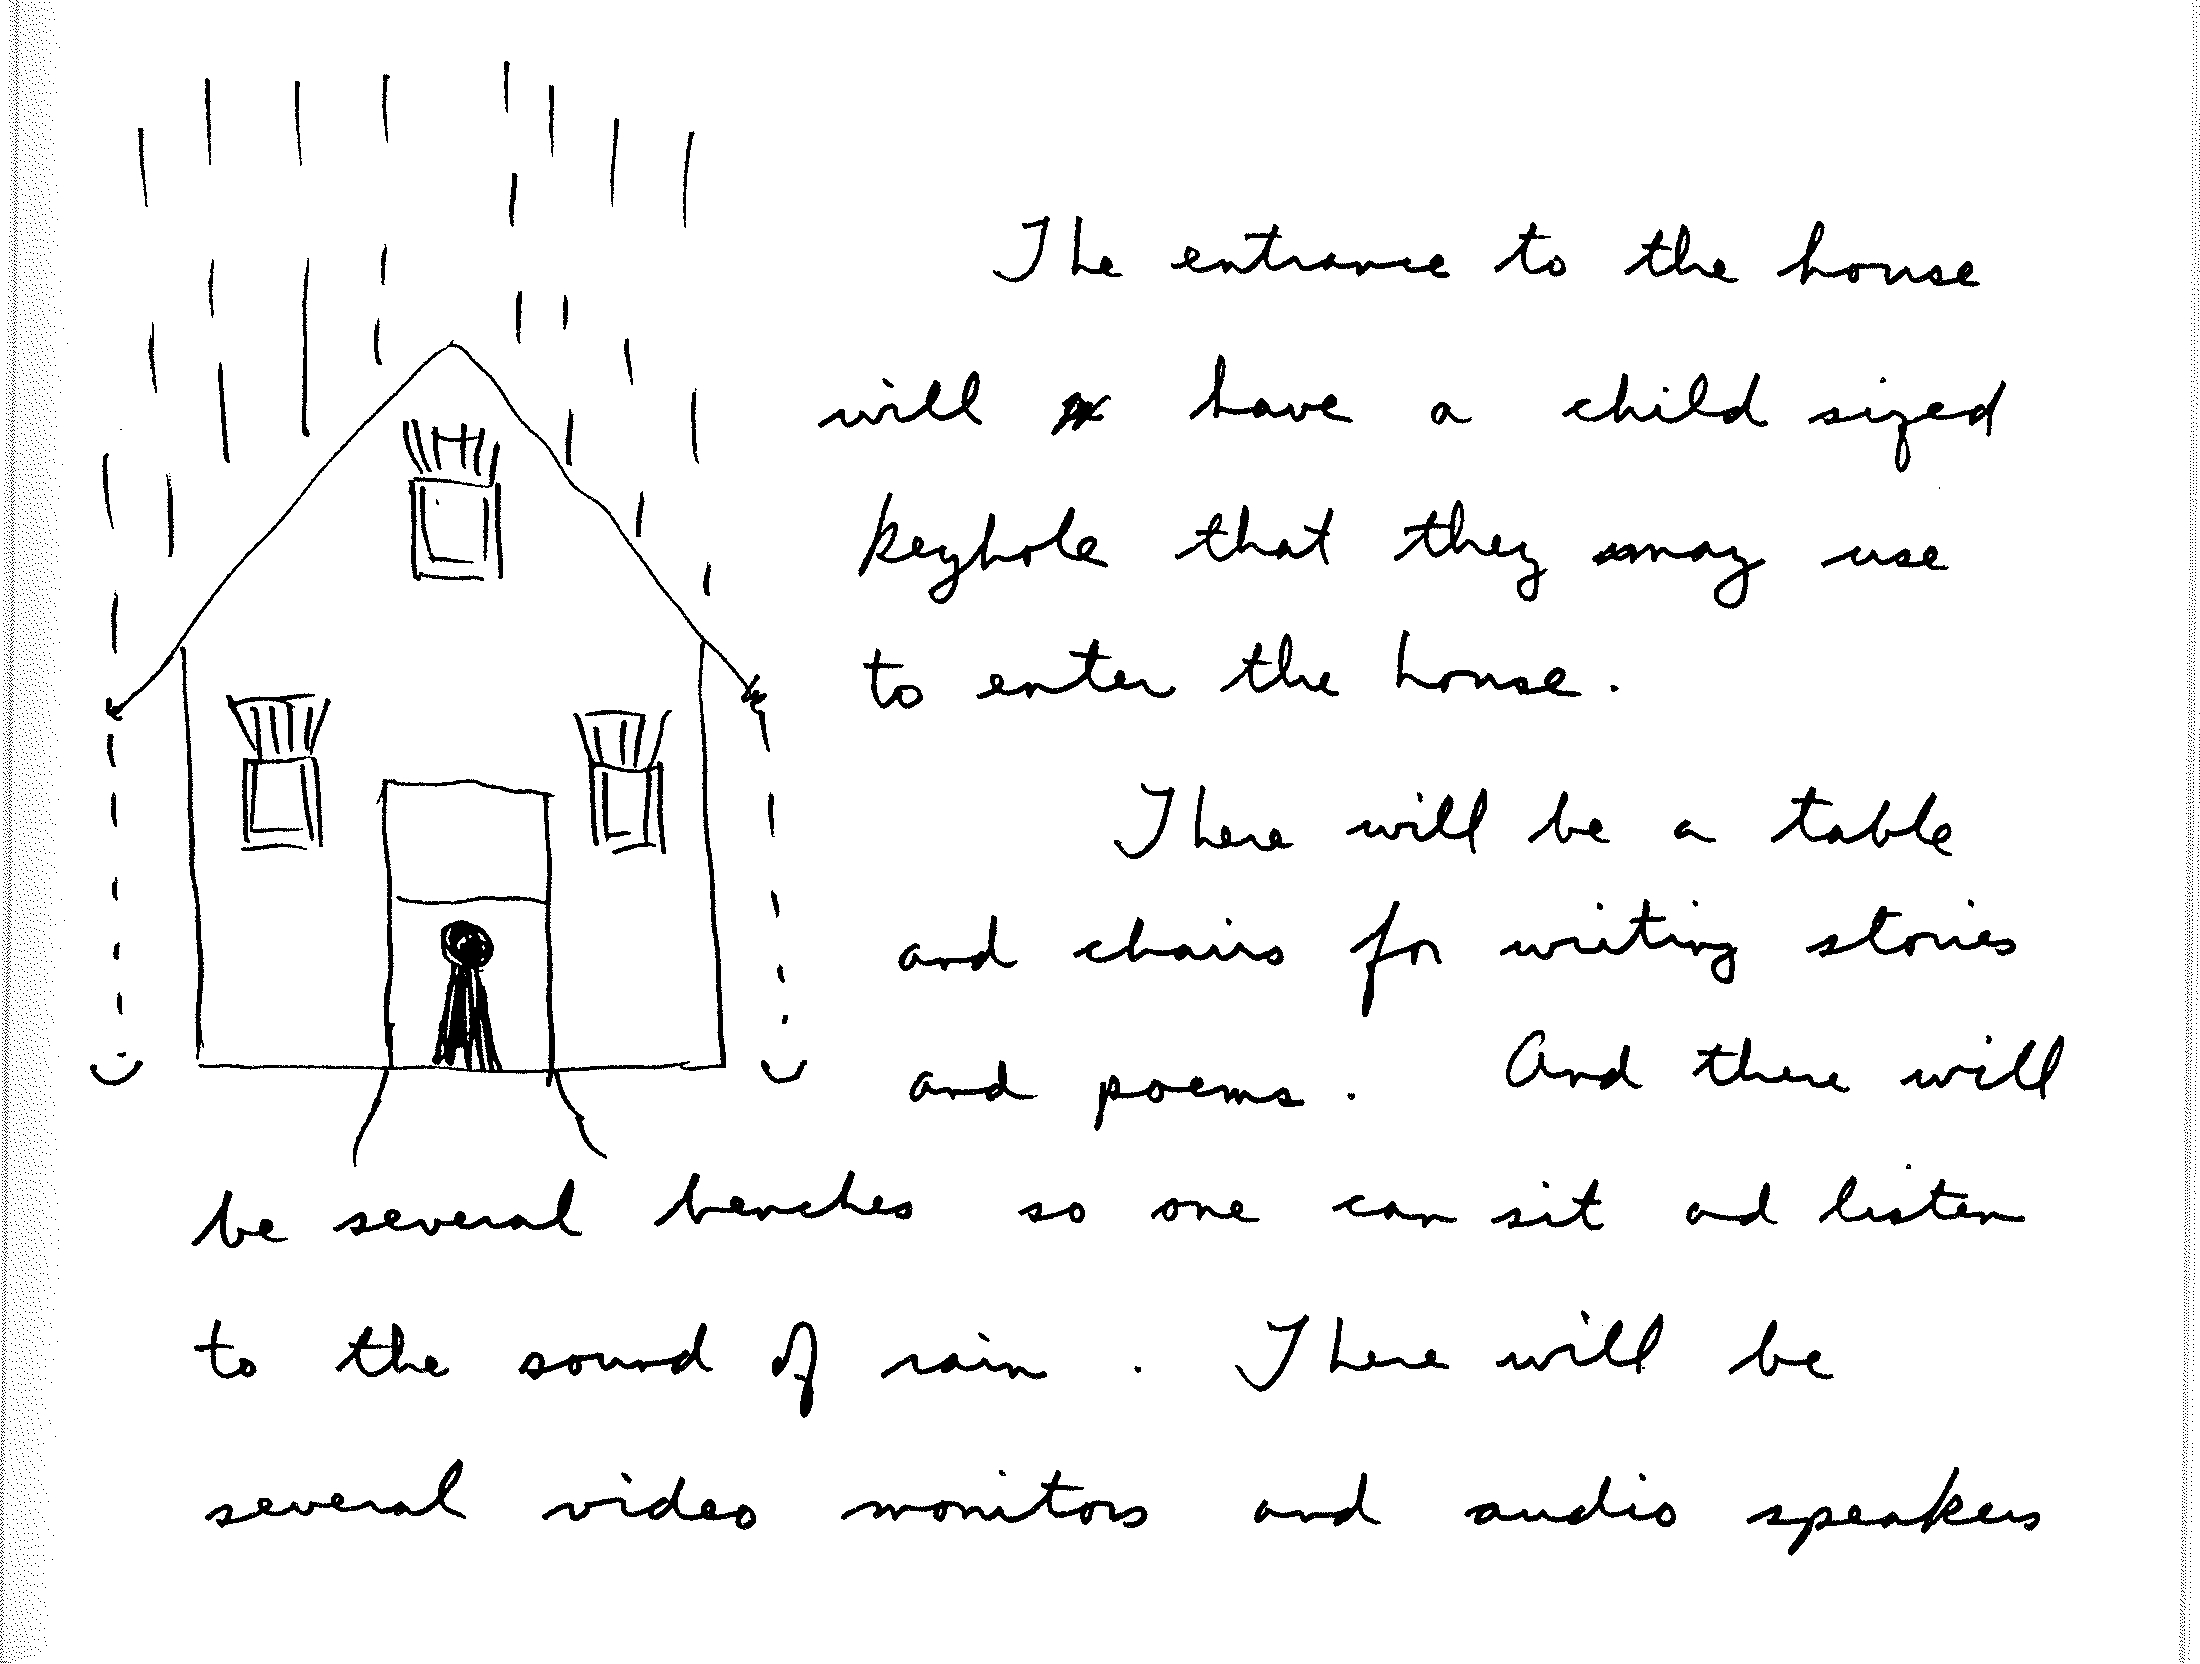 The entrance to the house
will have a child sized
keyhole that they may use
to enter the house.
There will be a table
and chairs for writing stories
and poems. And there will
be several benches so one can sit ad listen
to the sound of rain. There will be
several video monitors and audio speakers